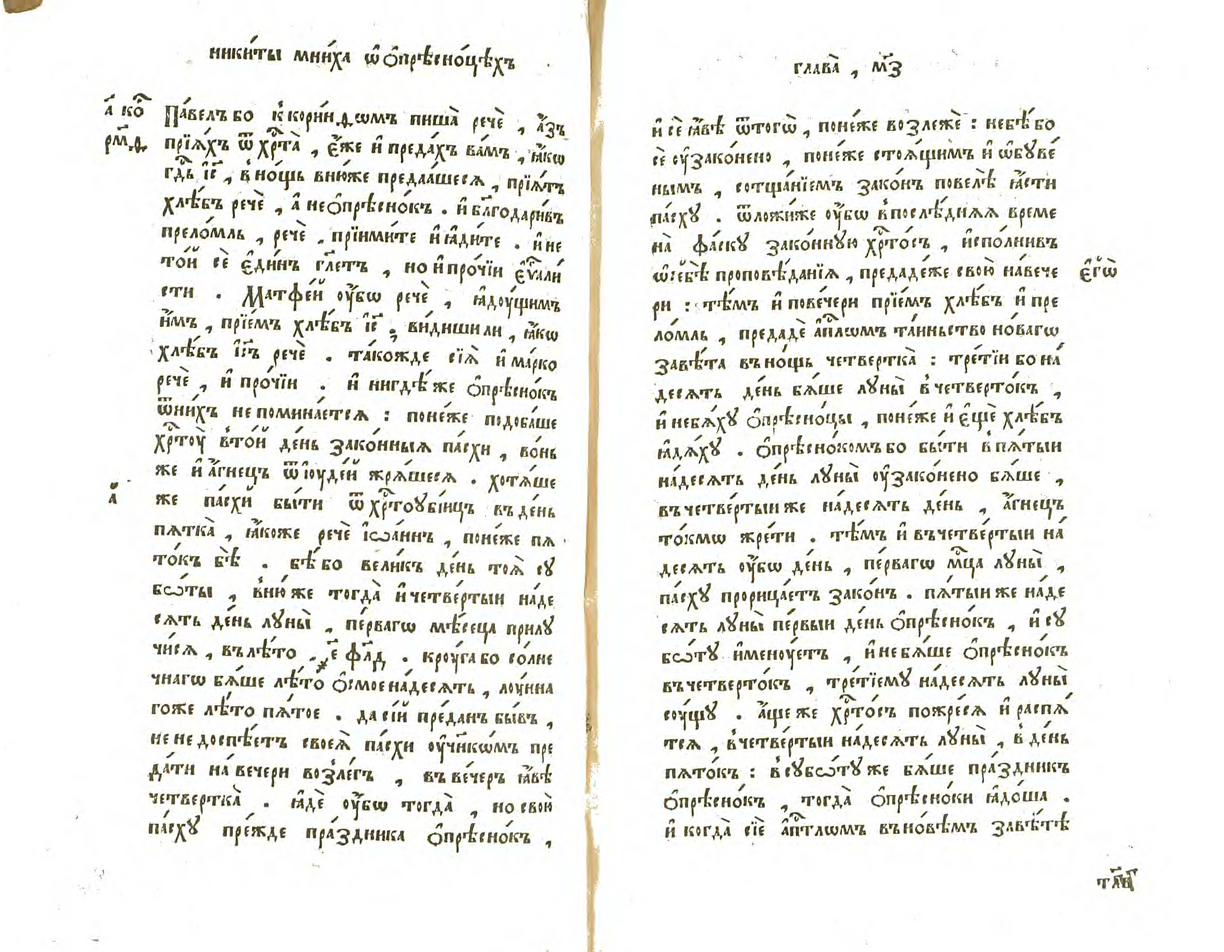 никѝты мни́ха ѡ҆ ѻ҆прѣсно́цѣхъ
а҃ ко҇
рм҃ѳ
Па́велъ бо к̾ корин́ѳѡмъ пиша̀ речѐ , а҆́зъ
прїѧ́хъ ѿ хр҇та̀ , є҆́же и҆ преда́хъ ва́мъ , ꙗ҆́кѡ
гдⷭ҇ь і҆с҃ , в̾ но́щь внюже преда́ѧшесѧ , прїѧ́тъ
хлѣ́бъ речѐ , а҆ не ѻ҆прѣсно́къ . и҆ бл҃годари́въ
прело́мль , речѐ . прїими́те и҆ ꙗ҆ди́те . и҆ не
то́й сѐ є҆ди́нъ гл҃етъ , но и҆ про́чїи є҆ѵ҃ли
сти . Матѳе́й ᲂу҆́бѡ речѐ , ꙗ҆дꙋ́щимъ
и҆̀мъ , прїе́мъ хлѣ́бъ і҆с҃ , ви́диши ли , ꙗ҆́кѡ
хлѣ́бъ і҆с҃ъ речѐ . та́кожде сїѧ̀ и҆ ма́рко
речѐ , и҆ про́чїи . и҆ нигдѣ́ же ѻ҆прѣсно́къ
ѿ ни́хъ не помина́етсѧ : поне́же подоба́ше
хр҇тоу̀ в̾ то́й де́нь зако́нныѧ па́схи , во́нь
же и҆ а҆́гнецъ ѿ і҆ꙋде́й жрѧ́шесѧ . хотѧ́ше
а҃
же па́схи бы́ти ѿ хр҇тоубі́ицъ въ де́нь
пѧтка̀ , ꙗ҆́коже речѐ і҆ѡа́ннъ , поне́же пѧ
то́къ бѣ̀ . бѣ́ бо вели́къ де́нь тоѧ̀ сꙋ
бѡ́ты , в̾ ню́ же тогда̀ и҆ четве́ртыи наде
сѧть де́нь лꙋны̀ , пе́рвагѡ мѣ́сеца прилꙋ
чи́сѧ , въ лѣ́то ҂е҃ фл҃д . крꙋ́га бо со́лне
чнагѡ бѧ́ше лѣ́то ѻ҆смоена́десѧть , лоу́нна
гоже лѣ́то пѧ́тое . да сі́й пре́данъ бы́въ ,
не не доспѣ́етъ своеѧ̀ па́схи ᲂу҆чн҃кѡ́мъ пре
да́ти на ве́чери возле́гъ , въ ве́черъ ꙗ҆́вѣ
четвертка̀ . ꙗ҆́де ᲂу҆́бѡ тогда̀ , но свою̀
па́схꙋ пре́жде пра́здника ѻ҆прѣсно́къ ,
глава̀ , м҃з
и҆ сѐ ꙗ҆́вѣ ѿ тогѡ̀ , поне́же возлежѐ : не бѣ́ бо
сѐ ᲂу҆зако́нено , поне́же стоѧ́щимъ и҆ ѡ҆бꙋве́
нымъ , со тща́нїемъ зако́нъ повелѣ̀ ꙗ҆́сти
па́схꙋ . ѿложи́же ᲂу҆́бѡ в̾послѣ́днѧѧ време
на̀ фа́скꙋ зако́ннꙋю хр҇то́съ , и҆спо́лнивъ
ѡ҆себѣ̀ проповѣ́данїѧ , предаде́же свою̀ на́вече
є҆гѡ̀
ри : тѣ́мъ и҆ по ве́чери прїе́мъ хлѣ́бъ и҆ пре
ло́мль , предадѐ а҆пⷭ҇лѡмъ та́иньство но́вагѡ
завѣ́та въ но́щь четвертка̀ : тре́тїи бо на́
десѧть де́нь бѧ́ше лꙋны̀ в̾ четверто́къ ,
и҆ не бѧ́хꙋ ѻ҆прѣсно́цы , поне́же и҆ є҆щѐ хлѣ́бъ
ꙗ҆дѧ́хꙋ . ѻ҆прѣсно́комъ бо бы́ти в̾ пѧ́тыи
на́десѧть де́нь лꙋны̀ ᲂу҆зако́нено бѧ́ше ,
въ четве́ртыи же на́десѧть де́нь , а҆́гнецъ
то́кмѡ жре́ти . тѣ́мъ и҆ въ четве́ртыи на́
десѧть ᲂу҆́бѡ де́нь , пе́рвагѡ мⷭ҇ца лꙋны̀ ,
па́схꙋ прорица́етъ зако́нъ . пѧ́тыи же на́де
сѧть лꙋны̀ пе́рвыи де́нь ѻ҆прѣсно́къ , и҆ сꙋ
бѡ́тꙋ и҆менꙋ́етъ , и҆ не бѧ́ше ѻ҆прѣсно́къ
въ четверто́къ , тре́тїемꙋ на́десѧть лꙋны̀
сꙋ́щꙋ . а҆́ще же хр҇то́съ пожре́сѧ и҆ распѧ́
тсѧ , в̾ четве́ртыи на́десѧть лꙋны̀ , в̾ де́нь
пѧто́къ : в̾ сꙋбѡ́тꙋ же бѧ́ше пра́здникъ
ѻ҆прѣсно́къ , тогда̀ ѻ҆прѣсно́ки ꙗ҆до́ша .
и҆ когда̀ сїѐ а҆пⷭ҇тлѡмъ въ но́вѣмъ завѣ́тѣ